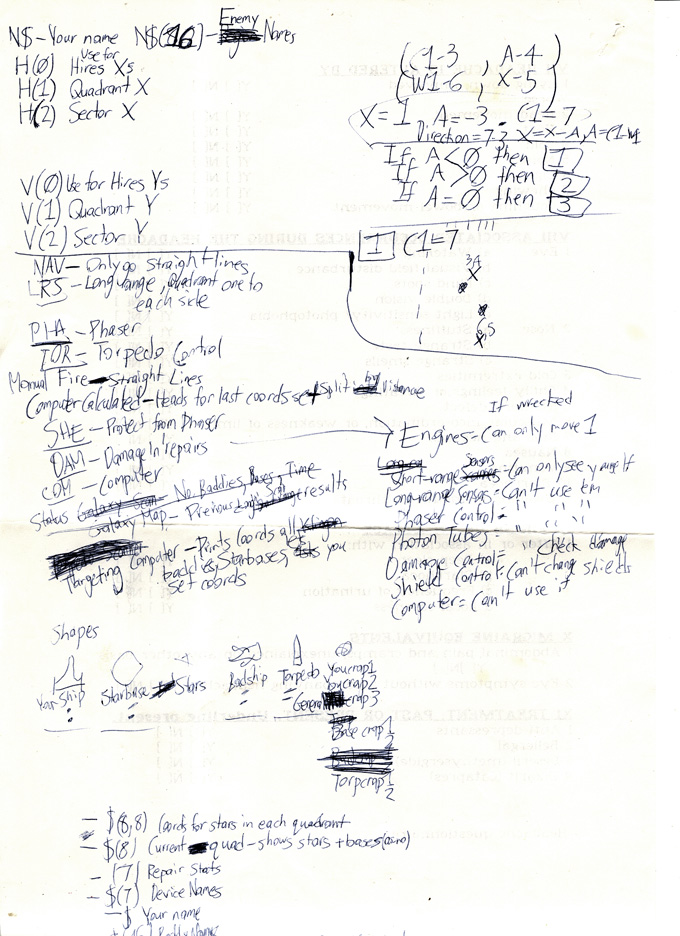 N$ - Your name N$(16) - Enemy Names
H(0) Use for Hires Xs
H(1) Quadrant X
H(2) Sector X
V(0) Use for Hires Ys
V(1) Quadrant Y
V(2) Sector Y
(C1-3 , A-4)
(W1-6 , X-5)
X=1, A=-3. C1=7
Direction=7-3 X=X-A, A=C1-W1
If A<0 then 1
If A>0 then 2
If A=0 then 3
1 C1=7
NAV - Only go straight lines
LRS - Long range, Quadrant one to
each side
PHA - Phaser
TOR - Torpedo Control
Manual Fire - Straight Lines
Computer Calculated - Heads for last coords set, split by distance
SHE - Protect from Phaser
DAM - Damage In repairs
COM - Computer
Status - No. Baddies, Bases, Time
Galaxy Map - Previous results
Targeting Computer - Prints coords all
baddies, Starbases, you
Set coords
If wrecked
Engines - Can only move 1
Short-range Sensors = Can only see yourself
Long-range Sensors = Can't use 'em
Phaser Control = " " "
Photon Tubes = " " "
Damage Control = Check damage
Shield Control = Can't change shields
Computer = Can't use it
Shapes
Your Ship
Starbase
Stars
Badship
Torpedo
Youcrap1
Youcrap2
General crap3
Base crap 1
2
Torpcrap 1
2
- $(8,8) Coords for stars in each quadrant
- $(8) Current quad - shows stars + bases
- (7) Repair Stats
- $(7) Device Names
- $ Your name